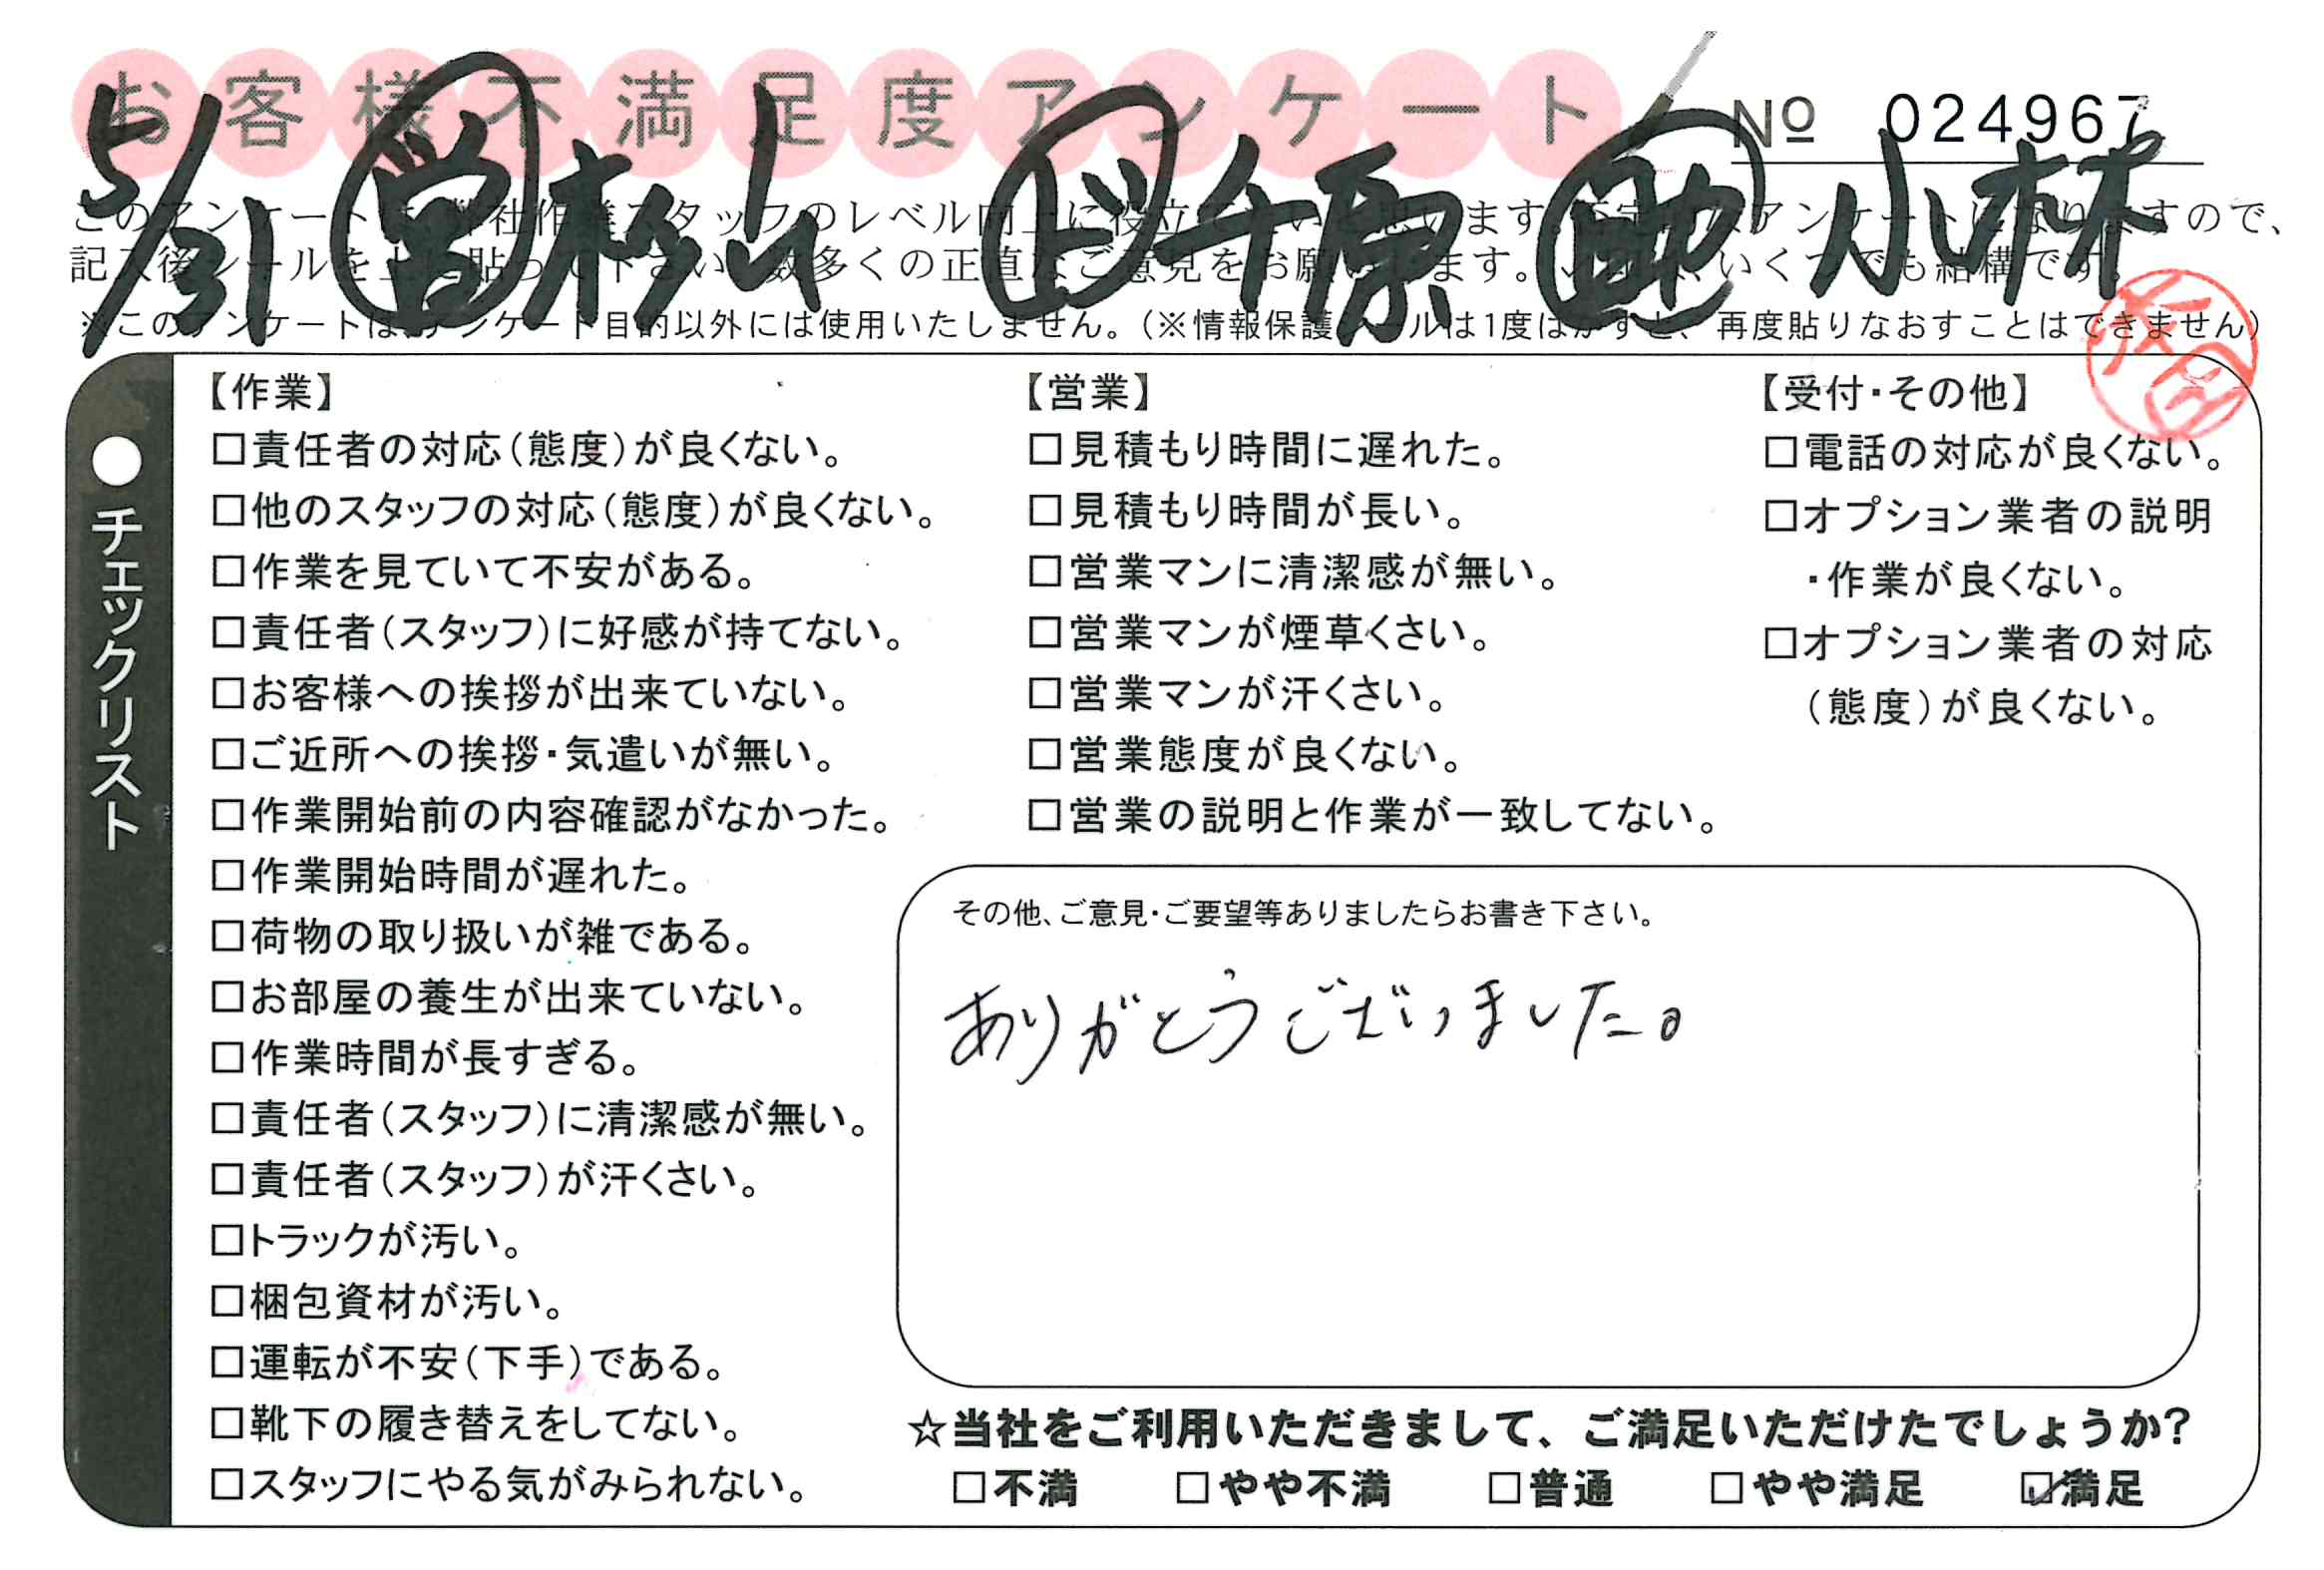 お客様不満足度アンケート
№ 024967
5/31 営 杉山 上 千原 地 小林
このアンケートは、弊社作業スタッフのレベル向上に役立てたいと思います。不定期なアンケートになりますので、
記入後シールを上に貼って下さい。数多くの正直なご意見をお願いします。いくつでも結構です。
※このアンケートは、アンケート目的以外には使用いたしません。（※情報保護シールは1度はがすと、再度貼りなおすことはできません）
●チェックリスト
【作業】
□責任者の対応（態度）が良くない。
□他のスタッフの対応（態度）が良くない。
□作業を見ていて不安がある。
□責任者（スタッフ）に好感が持てない。
□お客様への挨拶が出来ていない。
□ご近所への挨拶・気遣いが無い。
□作業開始前の内容確認がなかった。
□作業開始時間が遅れた。
□荷物の取り扱いが雑である。
□お部屋の養生が出来ていない。
□作業時間が長すぎる。
□責任者（スタッフ）に清潔感が無い。
□責任者（スタッフ）が汗くさい。
□トラックが汚い。
□梱包資材が汚い。
□運転が不安（下手）である。
□靴下の履き替えをしてない。
□スタッフにやる気がみられない。
【営業】
□見積もり時間に遅れた。
□見積もり時間が長い。
□営業マンに清潔感が無い。
□営業マンが煙草くさい。
□営業マンが汗くさい。
□営業態度が良くない。
□営業の説明と作業が一致してない。
【受付・その他】
□電話の対応が良くない。
□オプション業者の説明
・作業が良くない。
□オプション業者の対応
（態度）が良くない。
その他、ご意見・ご要望等ありましたらお書き下さい。
ありがとうございました。
☆当社をご利用いただきまして、ご満足いただけたでしょうか?
□不満 □やや不満 □普通 □やや満足 ☑満足